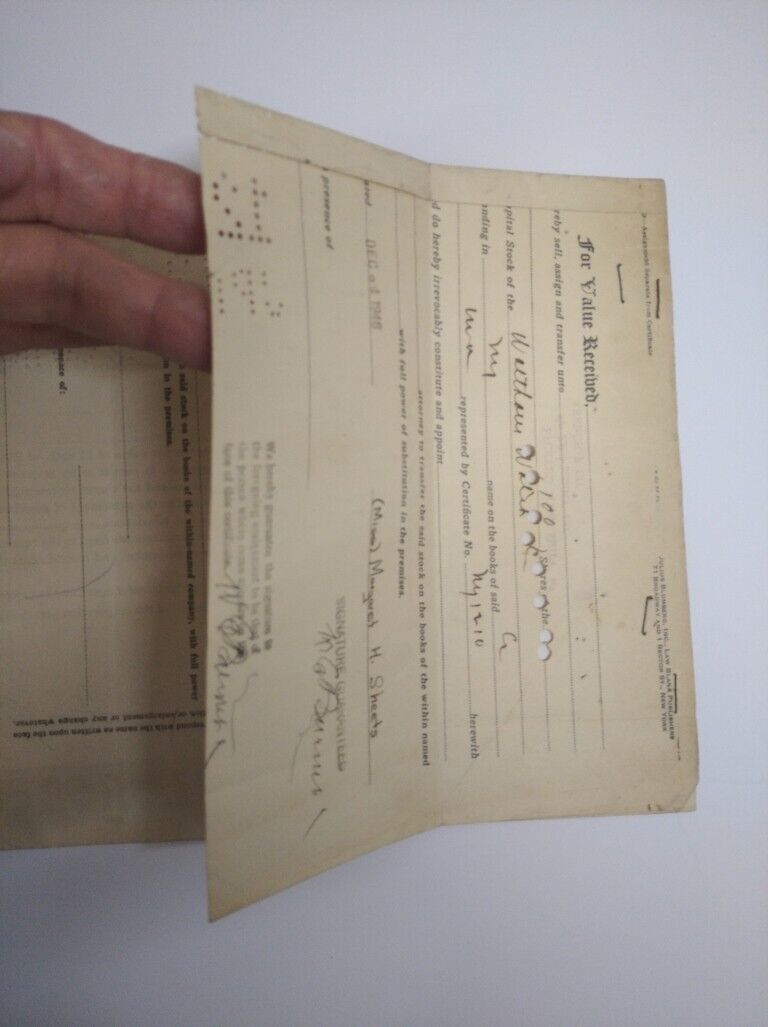 —Assignment Separate from Certificate
JULIUS BLUMBERG, INC., LAW BLANK PUBLISHERS
71 BROADWAY AND 1 RECTOR ST., NEW YORK
For Value Received,
reby sell, assign and transfer unto
100 Shares of the
pital Stock of the Waltham Watch Co
nding in my name on the books of said
represented by Certificate No. NY1210 herewith
d do hereby irrevocably constitute and appoint
attorney to transfer the said stock on the books of the within named
with full power of substitution in the premises.
ated DEC
(Miss) Margaret H. Sheets
presence of
SIGNATURE GUARANTEED
We hereby guarantee the signature to
the foregoing assignment to be that of
the person
face of this
said stock on the books of the within-named company, with full power
in the premises.
esence of:
espond with the name as written upon the face
tion or enlargement or any change whatever.